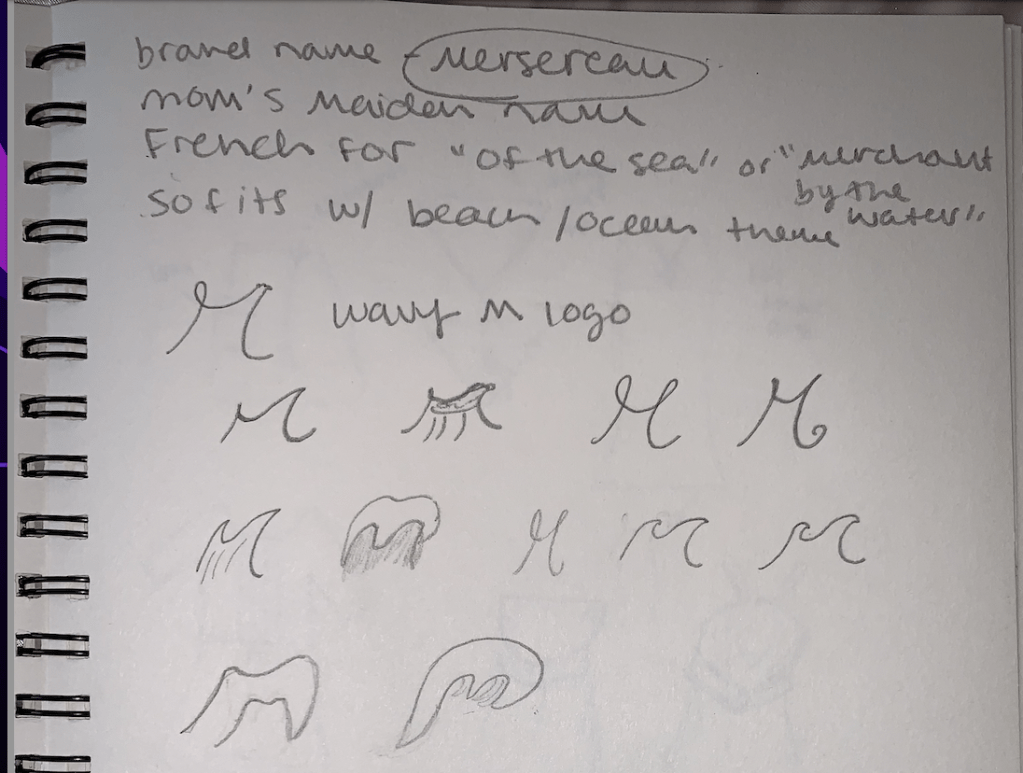 brand name - Mersereau
mom's maiden name
French for "of the sea" or "merchant by the water"
so fits w/ beach/ocean theme
wavy M logo